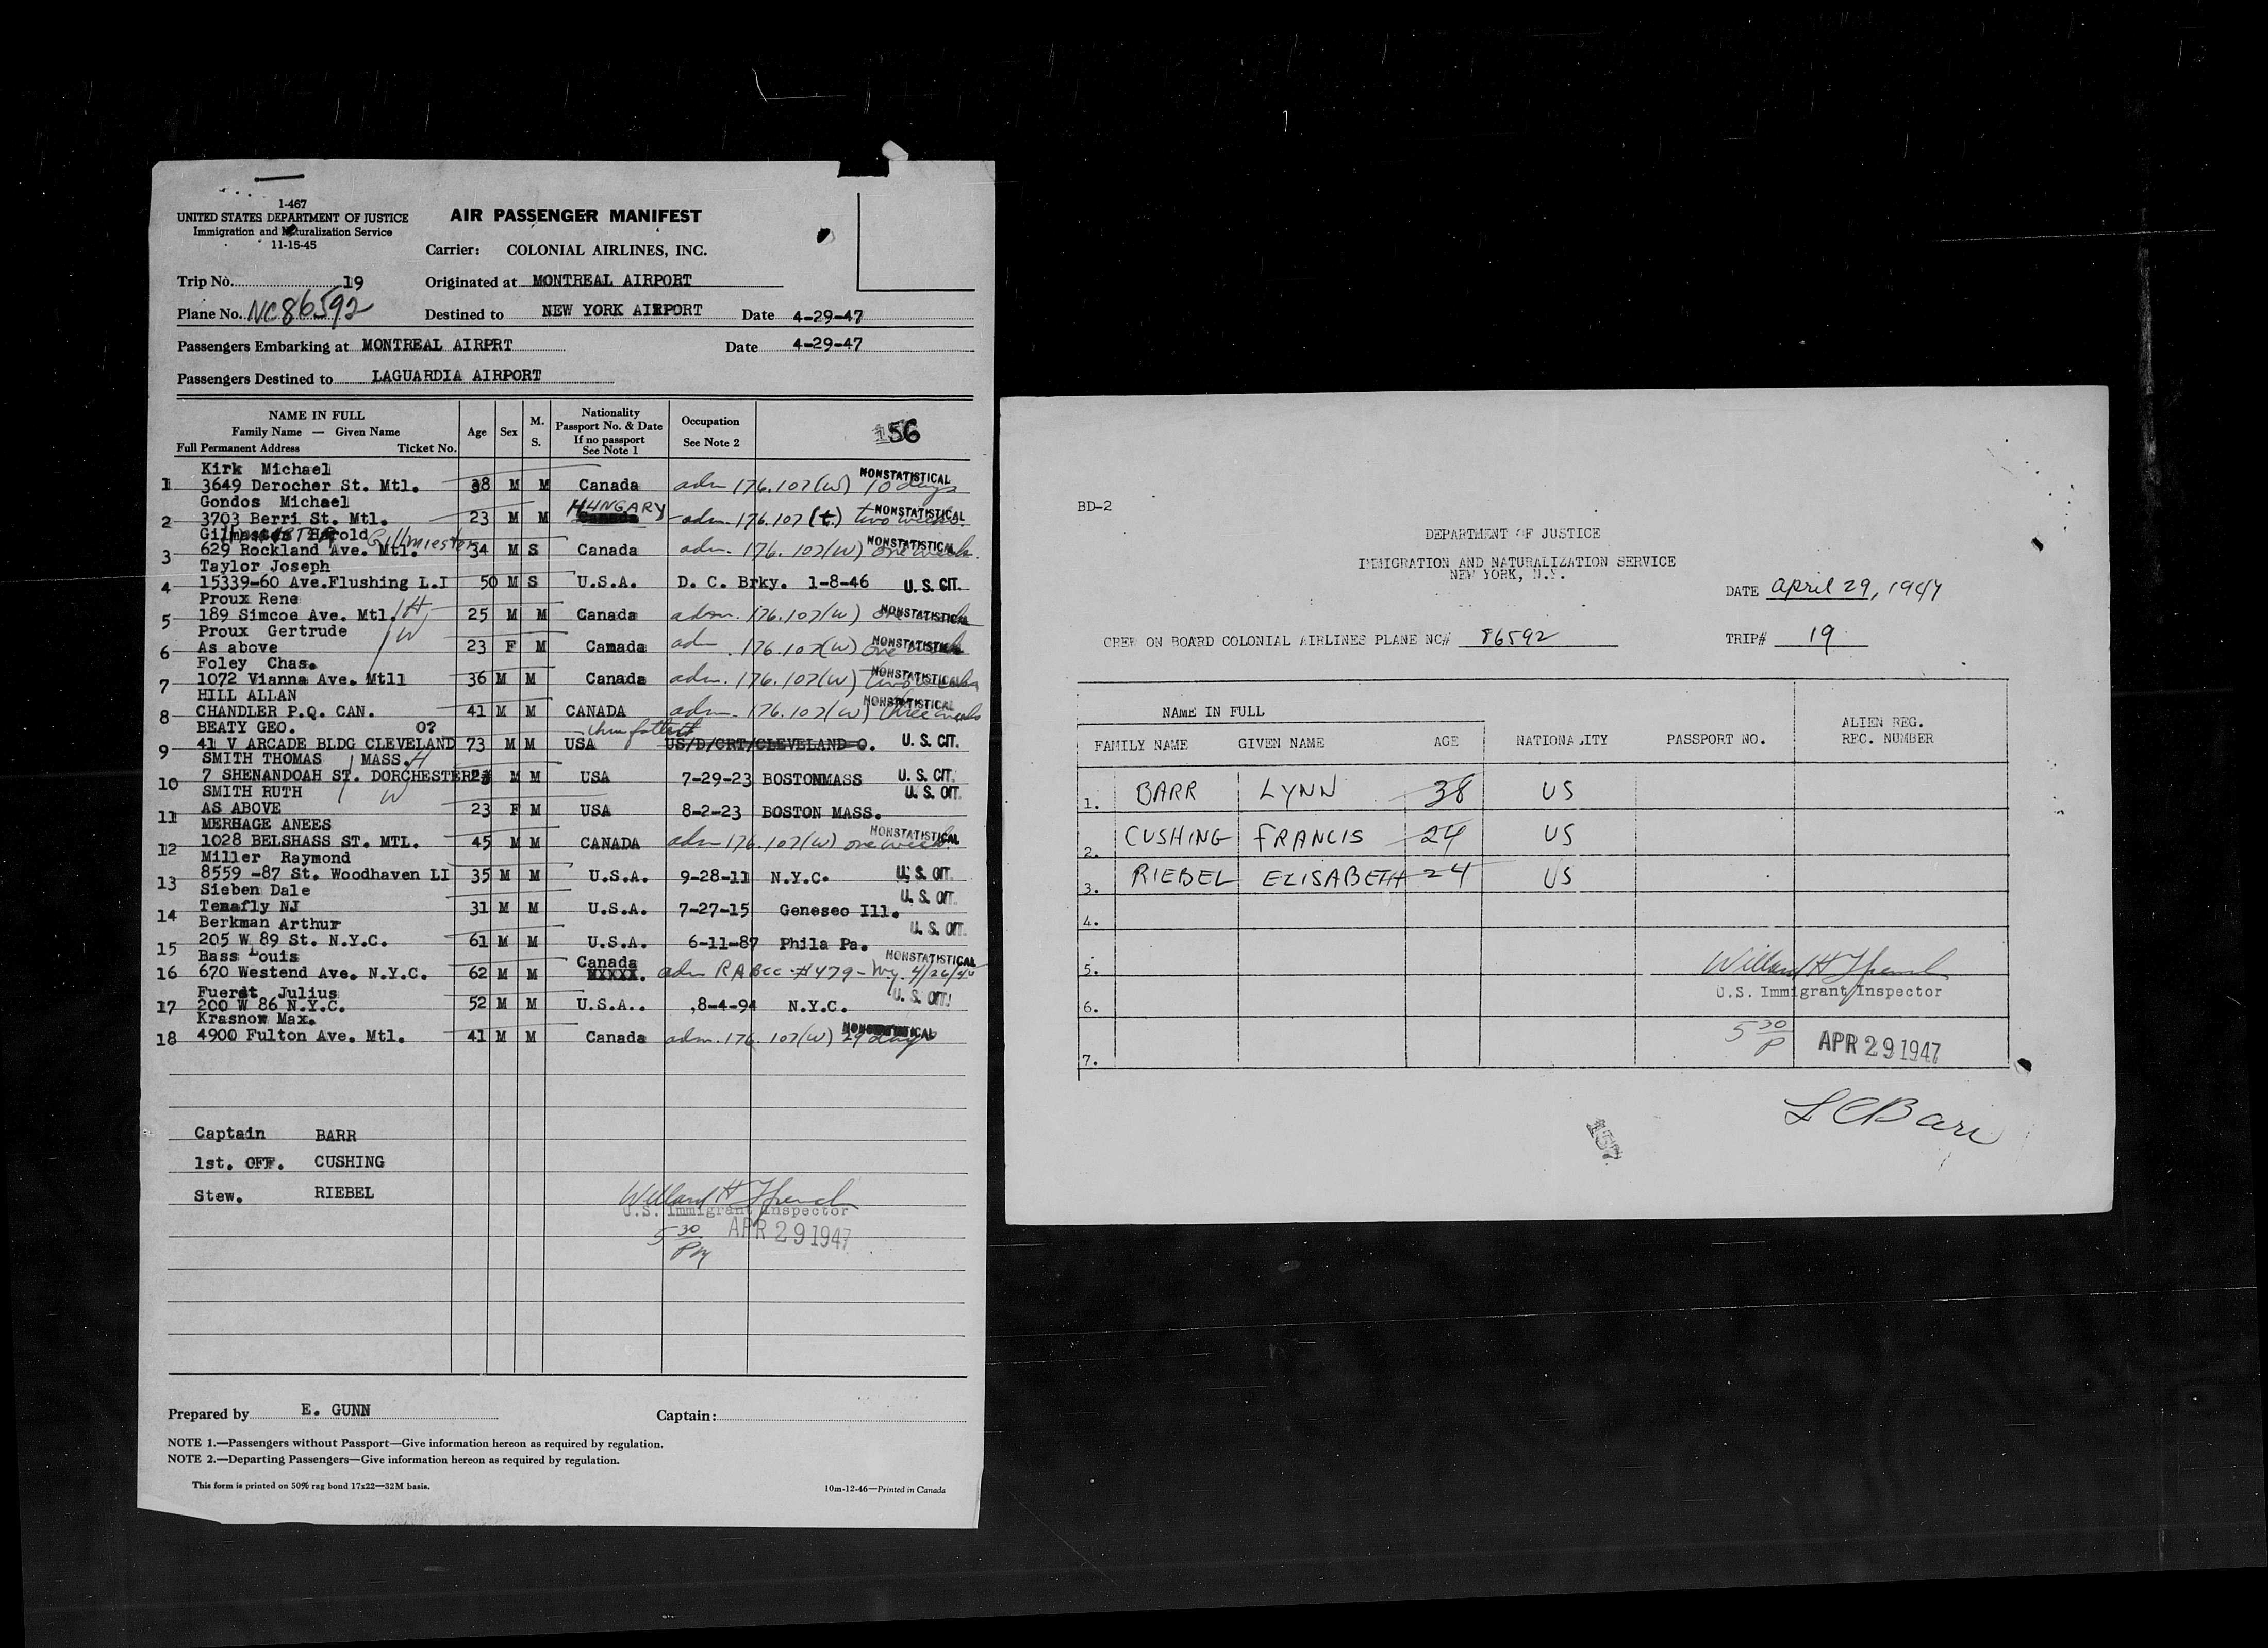 1-467
UNITED STATES DEPARTMENT OF JUSTICE
Immigration and Naturalization Service
11-15-45
AIR PASSENGER MANIFEST
Carrier: COLONIAL AIRLINES, INC.
Trip No. 19 Originated at MONTREAL AIRPORT
Plane No. NC86592 Destined to NEW YORK AIRPORT Date 4-29-47
Passengers Embarking at MONTREAL AIRPRT Date 4-29-47
Passengers Destined to LAGUARDIA AIRPORT
NAME IN FULL
Family Name — Given Name
Full Permanent Address Ticket No.
Age Sex M. S.
Nationality
Passport No. & Date
If no passport
See Note 1
Occupation
See Note 2
156
Kirk Michael
1 3649 Derocher St. Mtl. 38 M M Canada adm 176.107(W) 10 days NONSTATISTICAL
Gondos Michael
2 3703 Berri St. Mtl. 23 M M HUNGARY adm. 176.107 (t.) two weeks NONSTATISTICAL
Harold Gillmiester
3 629 Rockland Ave. Mtl. 34 M S Canada adm. 176.107(W) one week NONSTATISTICAL
Taylor Joseph
4 15339-60 Ave.Flushing L.I 50 M S U.S.A. D. C. Brky. 1-8-46 U. S. CIT.
Proux Rene
5 189 Simcoe Ave. Mtl. H 25 M M Canada adm. 176.107(W) NONSTATISTICAL
Proux Gertrude W
6 As above 23 F M Camada adm. 176.107(W) one NONSTATISTICAL
Foley Chas.
7 1072 Vianna Ave. Mtll 36 M M Canada adm. 176.107(W) two weeks NONSTATISTICAL
HILL ALLAN
8 CHANDLER P.Q. CAN. 41 M M CANADA adm. 176.107(W) three weeks NONSTATISTICAL
BEATY GEO. O?
9 41 V ARCADE BLDG CLEVELAND 73 M M USA US/D/CRT/CLEVELAND O. U. S. CIT.
SMITH THOMAS MASS. H
10 7 SHENANDOAH ST. DORCHESTER 23 M M USA 7-29-23 BOSTONMASS U. S. CIT.
SMITH RUTH W
11 AS ABOVE 23 F M USA 8-2-23 BOSTON MASS. U. S. CIT.
MERHAGE ANEES
12 1028 BELSHASS ST. MTL. 45 M M CANADA adm 176.107(W) one week NONSTATISTICAL
Miller Raymond
13 8559 -87 St. Woodhaven LI 35 M M U.S.A. 9-28-11 N.Y.C. U. S. CIT.
Sieben Dale
14 Tenafly NJ 31 M M U.S.A. 7-27-15 Geneseo Ill. U. S. CIT.
Berkman Arthur
15 205 W 89 St. N.Y.C. 61 M M U.S.A. 6-11-87 Phila Pa. U. S. CIT.
Bass Louis
16 670 Westend Ave. N.Y.C. 62 M M Canada adm RABCC #479 NONSTATISTICAL
Fuerst Julius
17 200 W 86 N.Y.C. 52 M M U.S.A.. ,8-4-94 N.Y.C. U. S. CIT.
Krasnow Max.
18 4900 Fulton Ave. Mtl. 41 M M Canada adm. 176.107(W) 29 days NONSTATISTICAL
Captain BARR
1st. OFF. CUSHING
Stew. RIEBEL
U.S. Immigrant Inspector
5 30 PM APR 29 1947
Prepared by E. GUNN Captain:
NOTE 1.—Passengers without Passport—Give information hereon as required by regulation.
NOTE 2.—Departing Passengers—Give information hereon as required by regulation.
This form is printed on 50% rag bond 17x22—32M basis. 10m-12-46—Printed in Canada
BD-2
DEPARTMENT OF JUSTICE
IMMIGRATION AND NATURALIZATION SERVICE
NEW YORK, N.Y.
DATE April 29, 1947
CREW ON BOARD COLONIAL AIRLINES PLANE NC# 86592 TRIP# 19
NAME IN FULL
FAMILY NAME GIVEN NAME AGE NATIONALITY PASSPORT NO. ALIEN REG. REC. NUMBER
1. BARR LYNN 38 US
2. CUSHING FRANCIS 24 US
3. RIEBEL ELISABETH 24 US
4.
5.
U.S. Immigrant Inspector
6.
5 30 P APR 29 1947
7.
L C Barr
157